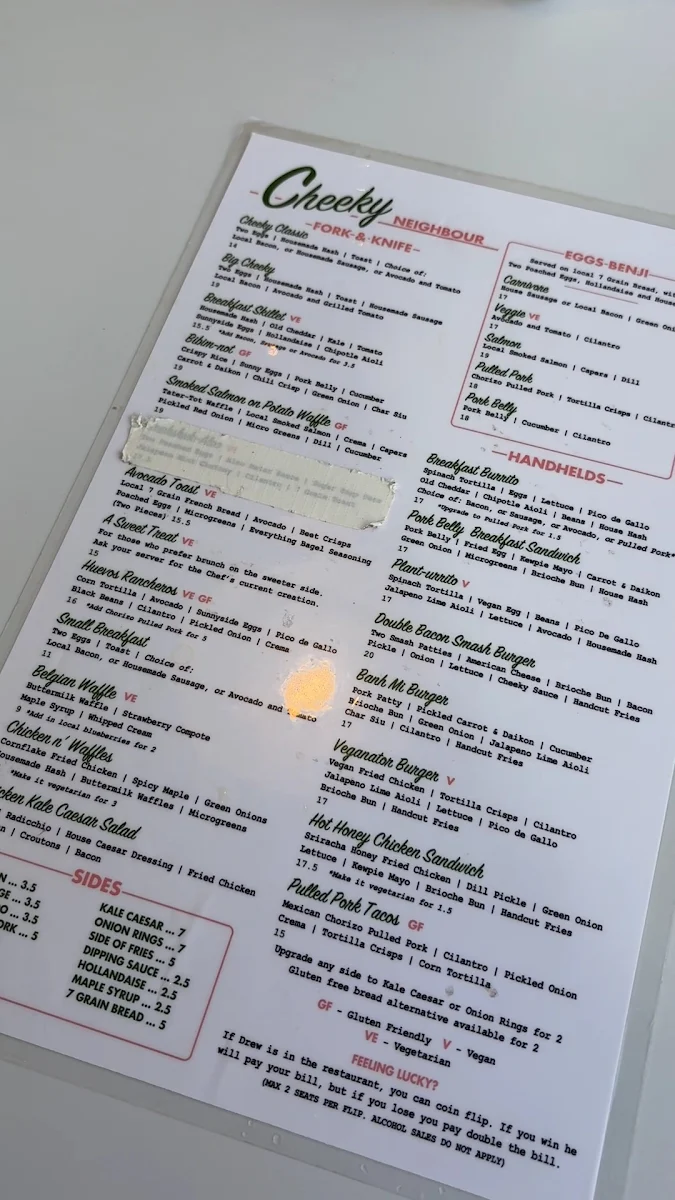 Cheeky NEIGHBOUR
-FORK-&-KNIFE-
Cheeky Classic
Two Eggs | Housemade Hash | Toast | Choice of:
Local Bacon, or Housemade Sausage, or Avocado and Tomato
14
Big Cheeky
Two Eggs | Housemade Hash | Toast | Housemade Sausage
Local Bacon | Avocado and Grilled Tomato
19
Breakfast Skillet VE
Housemade Hash | Old Cheddar | Kale | Tomato
Sunnyside Eggs | Hollandaise | Chipotle Aioli
15.5 *Add Bacon, Sausage or Avocado for 3.5
Bibim-not GF
Crispy Rice | Sunny Eggs | Pork Belly | Cucumber
Carrot & Daikon | Chili Crisp | Green Onion | Char Siu
19
Smoked Salmon on Potato Waffle GF
Tater-Tot Waffle | Local Smoked Salmon | Crema | Capers
Pickled Red Onion | Micro Greens | Dill | Cucumber
19
Avocado Toast VE
Local 7 Grain French Bread | Avocado | Beet Crisps
Poached Eggs | Microgreens | Everything Bagel Seasoning
(Two Pieces) 15.5
A Sweet Treat VE
For those who prefer brunch on the sweeter side.
Ask your server for the Chef's current creation.
15
Huevos Rancheros VE GF
Corn Tortilla | Avocado | Sunnyside Eggs | Pico de Gallo
Black Beans | Cilantro | Pickled Onion | Crema
16 *Add Chorizo Pulled Pork for 5
Small Breakfast
Two Eggs | Toast | Choice of:
Local Bacon, or Housemade Sausage, or Avocado and Tomato
11
Belgian Waffle VE
Buttermilk Waffle | Strawberry Compote
Maple Syrup | Whipped Cream
9 *Add in local blueberries for 2
Chicken n' Waffles
Cornflake Fried Chicken | Spicy Maple | Green Onions
ousemade Hash | Buttermilk Waffles | Microgreens
*Make it vegetarian for 3
cken Kale Caesar Salad
Radicchio | House Caesar Dressing | Fried Chicken
n | Croutons | Bacon
SIDES
N ... 3.5
GE ... 3.5
O ... 3.5
ORK ... 5
KALE CAESAR ... 7
ONION RINGS ... 7
SIDE OF FRIES ... 5
DIPPING SAUCE ... 2.5
HOLLANDAISE ... 2.5
MAPLE SYRUP ... 2.5
7 GRAIN BREAD ... 5
EGGS-BENJI
Served on local 7 Grain Bread, wi
Two Poached Eggs, Hollandaise and Hous
Carnivore
House Sausage or Local Bacon | Green Oni
17
Veggie VE
Avocado and Tomato | Cilantro
17
Salmon
Local Smoked Salmon | Capers | Dill
19
Pulled Pork
Chorizo Pulled Pork | Tortilla Crisps | Cilantr
18
Pork Belly
Pork Belly | Cucumber | Cilantro
18
-HANDHELDS-
Breakfast Burrito
Spinach Tortilla | Eggs | Lettuce | Pico de Gallo
Old Cheddar | Chipotle Aioli | Beans | House Hash
Choice of: Bacon, or Sausage, or Avocado, or Pulled Pork*
17 *Upgrade to Pulled Pork for 1.5
Pork Belly Breakfast Sandwich
Pork Belly | Fried Egg | Kewpie Mayo | Carrot & Daikon
Green Onion | Microgreens | Brioche Bun | House Hash
17
Plant-urrito V
Spinach Tortilla | Vegan Egg | Beans | Pico De Gallo
Jalapeno Lime Aioli | Lettuce | Avocado | Housemade Hash
17
Double Bacon Smash Burger
Two Smash Patties | American Cheese | Brioche Bun | Bacon
Pickle | Onion | Lettuce | Cheeky Sauce | Handcut Fries
20
Banh Mi Burger
Pork Patty | Pickled Carrot & Daikon | Cucumber
Brioche Bun | Green Onion | Jalapeno Lime Aioli
Char Siu | Cilantro | Handcut Fries
17
Veganator Burger V
Vegan Fried Chicken | Tortilla Crisps | Cilantro
Jalapeno Lime Aioli | Lettuce | Pico de Gallo
Brioche Bun | Handcut Fries
17
Hot Honey Chicken Sandwich
Sriracha Honey Fried Chicken | Dill Pickle | Green Onion
Lettuce | Kewpie Mayo | Brioche Bun | Handcut Fries
17.5 *Make it vegetarian for 1.5
Pulled Pork Tacos GF
Mexican Chorizo Pulled Pork | Cilantro | Pickled Onion
Crema | Tortilla Crisps | Corn Tortilla
15
Upgrade any side to Kale Caesar or Onion Rings for 2
Gluten free bread alternative available for 2
GF - Gluten Friendly V - Vegan
VE - Vegetarian
FEELING LUCKY?
If Drew is in the restaurant, you can coin flip. If you win he
will pay your bill, but if you lose you pay double the bill.
(MAX 2 SEATS PER FLIP. ALCOHOL SALES DO NOT APPLY)